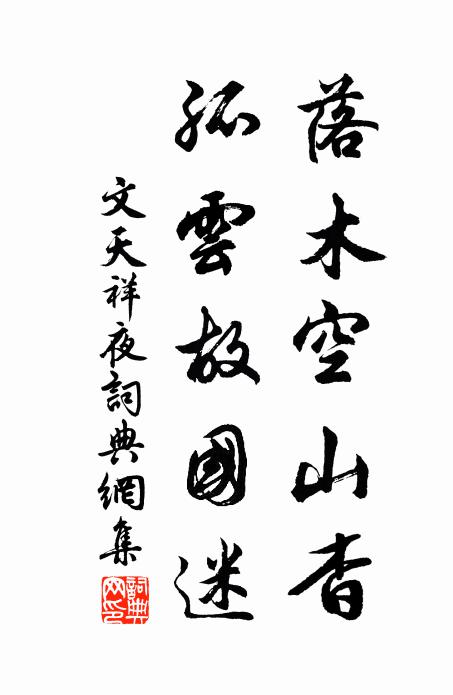 落木空山杳
孤雲故國迷
文天祥夜詞典網集
詞典网印